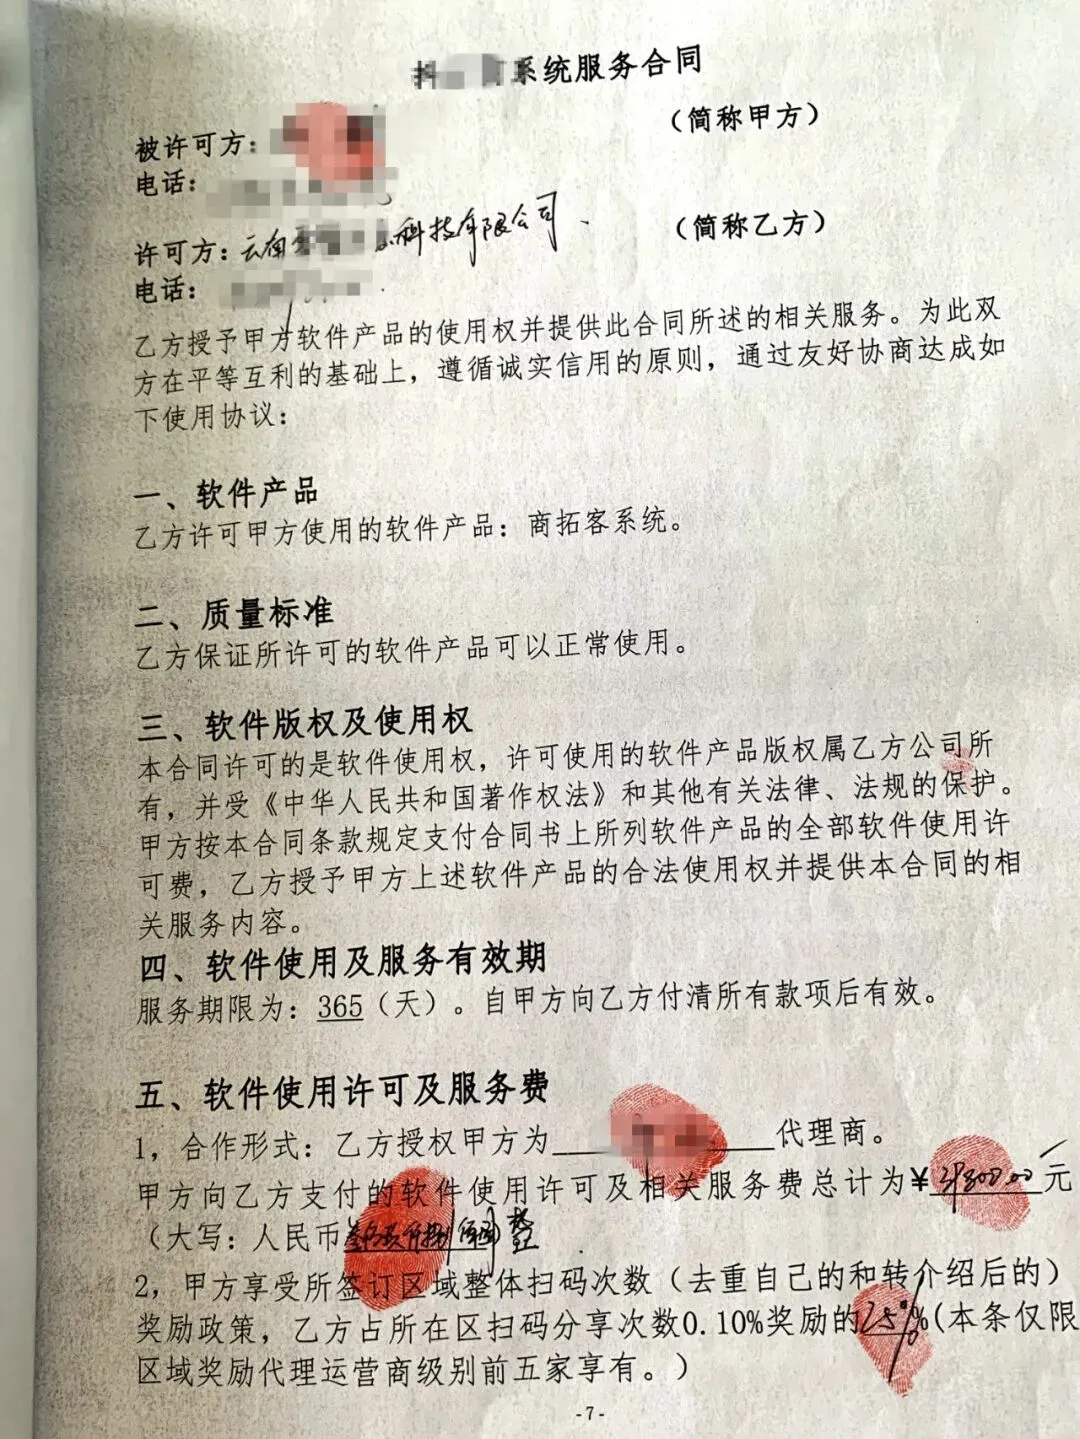 抖 系统服务合同
被许可方： （简称甲方）
电话：
许可方：云南 科技有限公司 （简称乙方）
电话：
乙方授予甲方软件产品的使用权并提供此合同所述的相关服务。为此双
方在平等互利的基础上，遵循诚实信用的原则，通过友好协商达成如
下使用协议：
一、软件产品
乙方许可甲方使用的软件产品：商拓客系统。
二、质量标准
乙方保证所许可的软件产品可以正常使用。
三、软件版权及使用权
本合同许可的是软件使用权，许可使用的软件产品版权属乙方公司所
有，并受《中华人民共和国著作权法》和其他有关法律、法规的保护。
甲方按本合同条款规定支付合同书上所列软件产品的全部软件使用许
可费，乙方授予甲方上述软件产品的合法使用权并提供本合同的相
关服务内容。
四、软件使用及服务有效期
服务期限为：365（天）。自甲方向乙方付清所有款项后有效。
五、软件使用许可及服务费
1，合作形式：乙方授权甲方为 代理商。
甲方向乙方支付的软件使用许可及相关服务费总计为¥ 元
（大写：人民币 整
2，甲方享受所签订区域整体扫码次数（去重自己的和转介绍后的）
奖励政策，乙方占所在区扫码分享次数0.10%奖励的25%（本条仅限
区域奖励代理运营商级别前五家享有。）
-7-